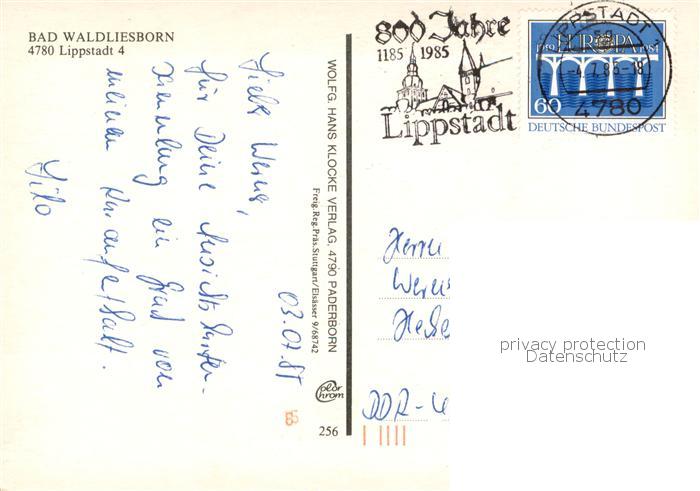 BAD WALDLIESBORN
4780 Lippstadt 4
800 Jahre
1185 1985
Lippstadt
LIPPSTADT 1
59
-4.7.85-18
4780
1959 EUROPA 1984
60
DEUTSCHE BUNDESPOST
03.07.85
Liebe Werner,
für Deine Ansichtskarten-
sammlung ein Gruß von
meinem Kuraufenthalt.
WOLFG. HANS KLOCKE VERLAG, 4790 PADERBORN
Freig. Reg. Präs. Stuttgart/Elsässer 9/68742
color
chrom
256
Herrn
Werner
DDR-
privacy protection
Datenschutz